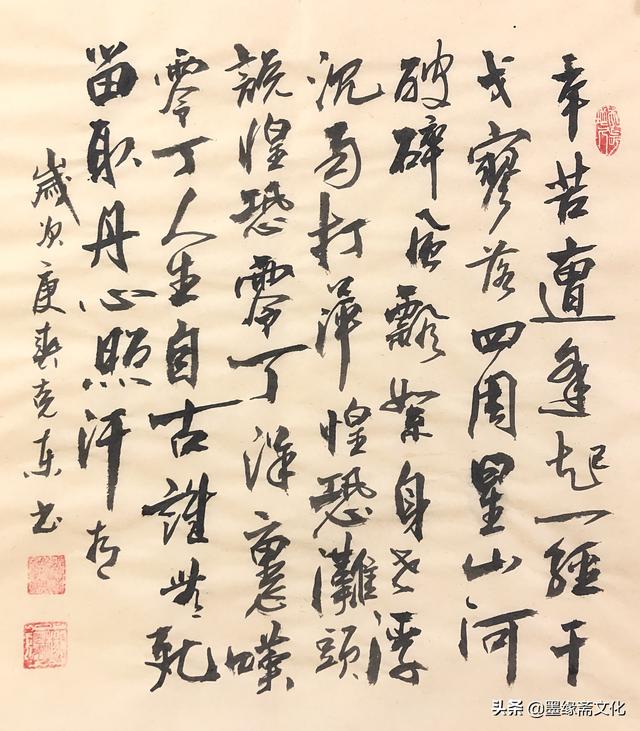 辛苦遭逢起一經干
戈寥落四周星山河
破碎風飄絮身世浮
沉雨打萍惶恐灘頭
說惶恐零丁洋裏嘆
零丁人生自古誰無死
留取丹心照汗青
歲次庚克东书
头条 @墨缘斋文化